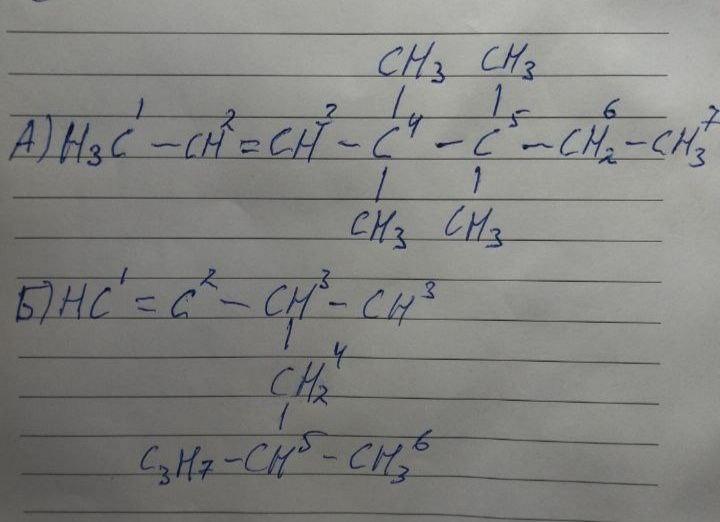 CH₃ CH₃
А) H₃C¹ – CH² = CH³ – C⁴ – C⁵ – CH₂⁶ – CH₃⁷
CH₃ CH₃
Б) HC¹ = C² – CH³ – CH³
CH₂⁴
C₃H₇ – CH⁵ – CH₃⁶